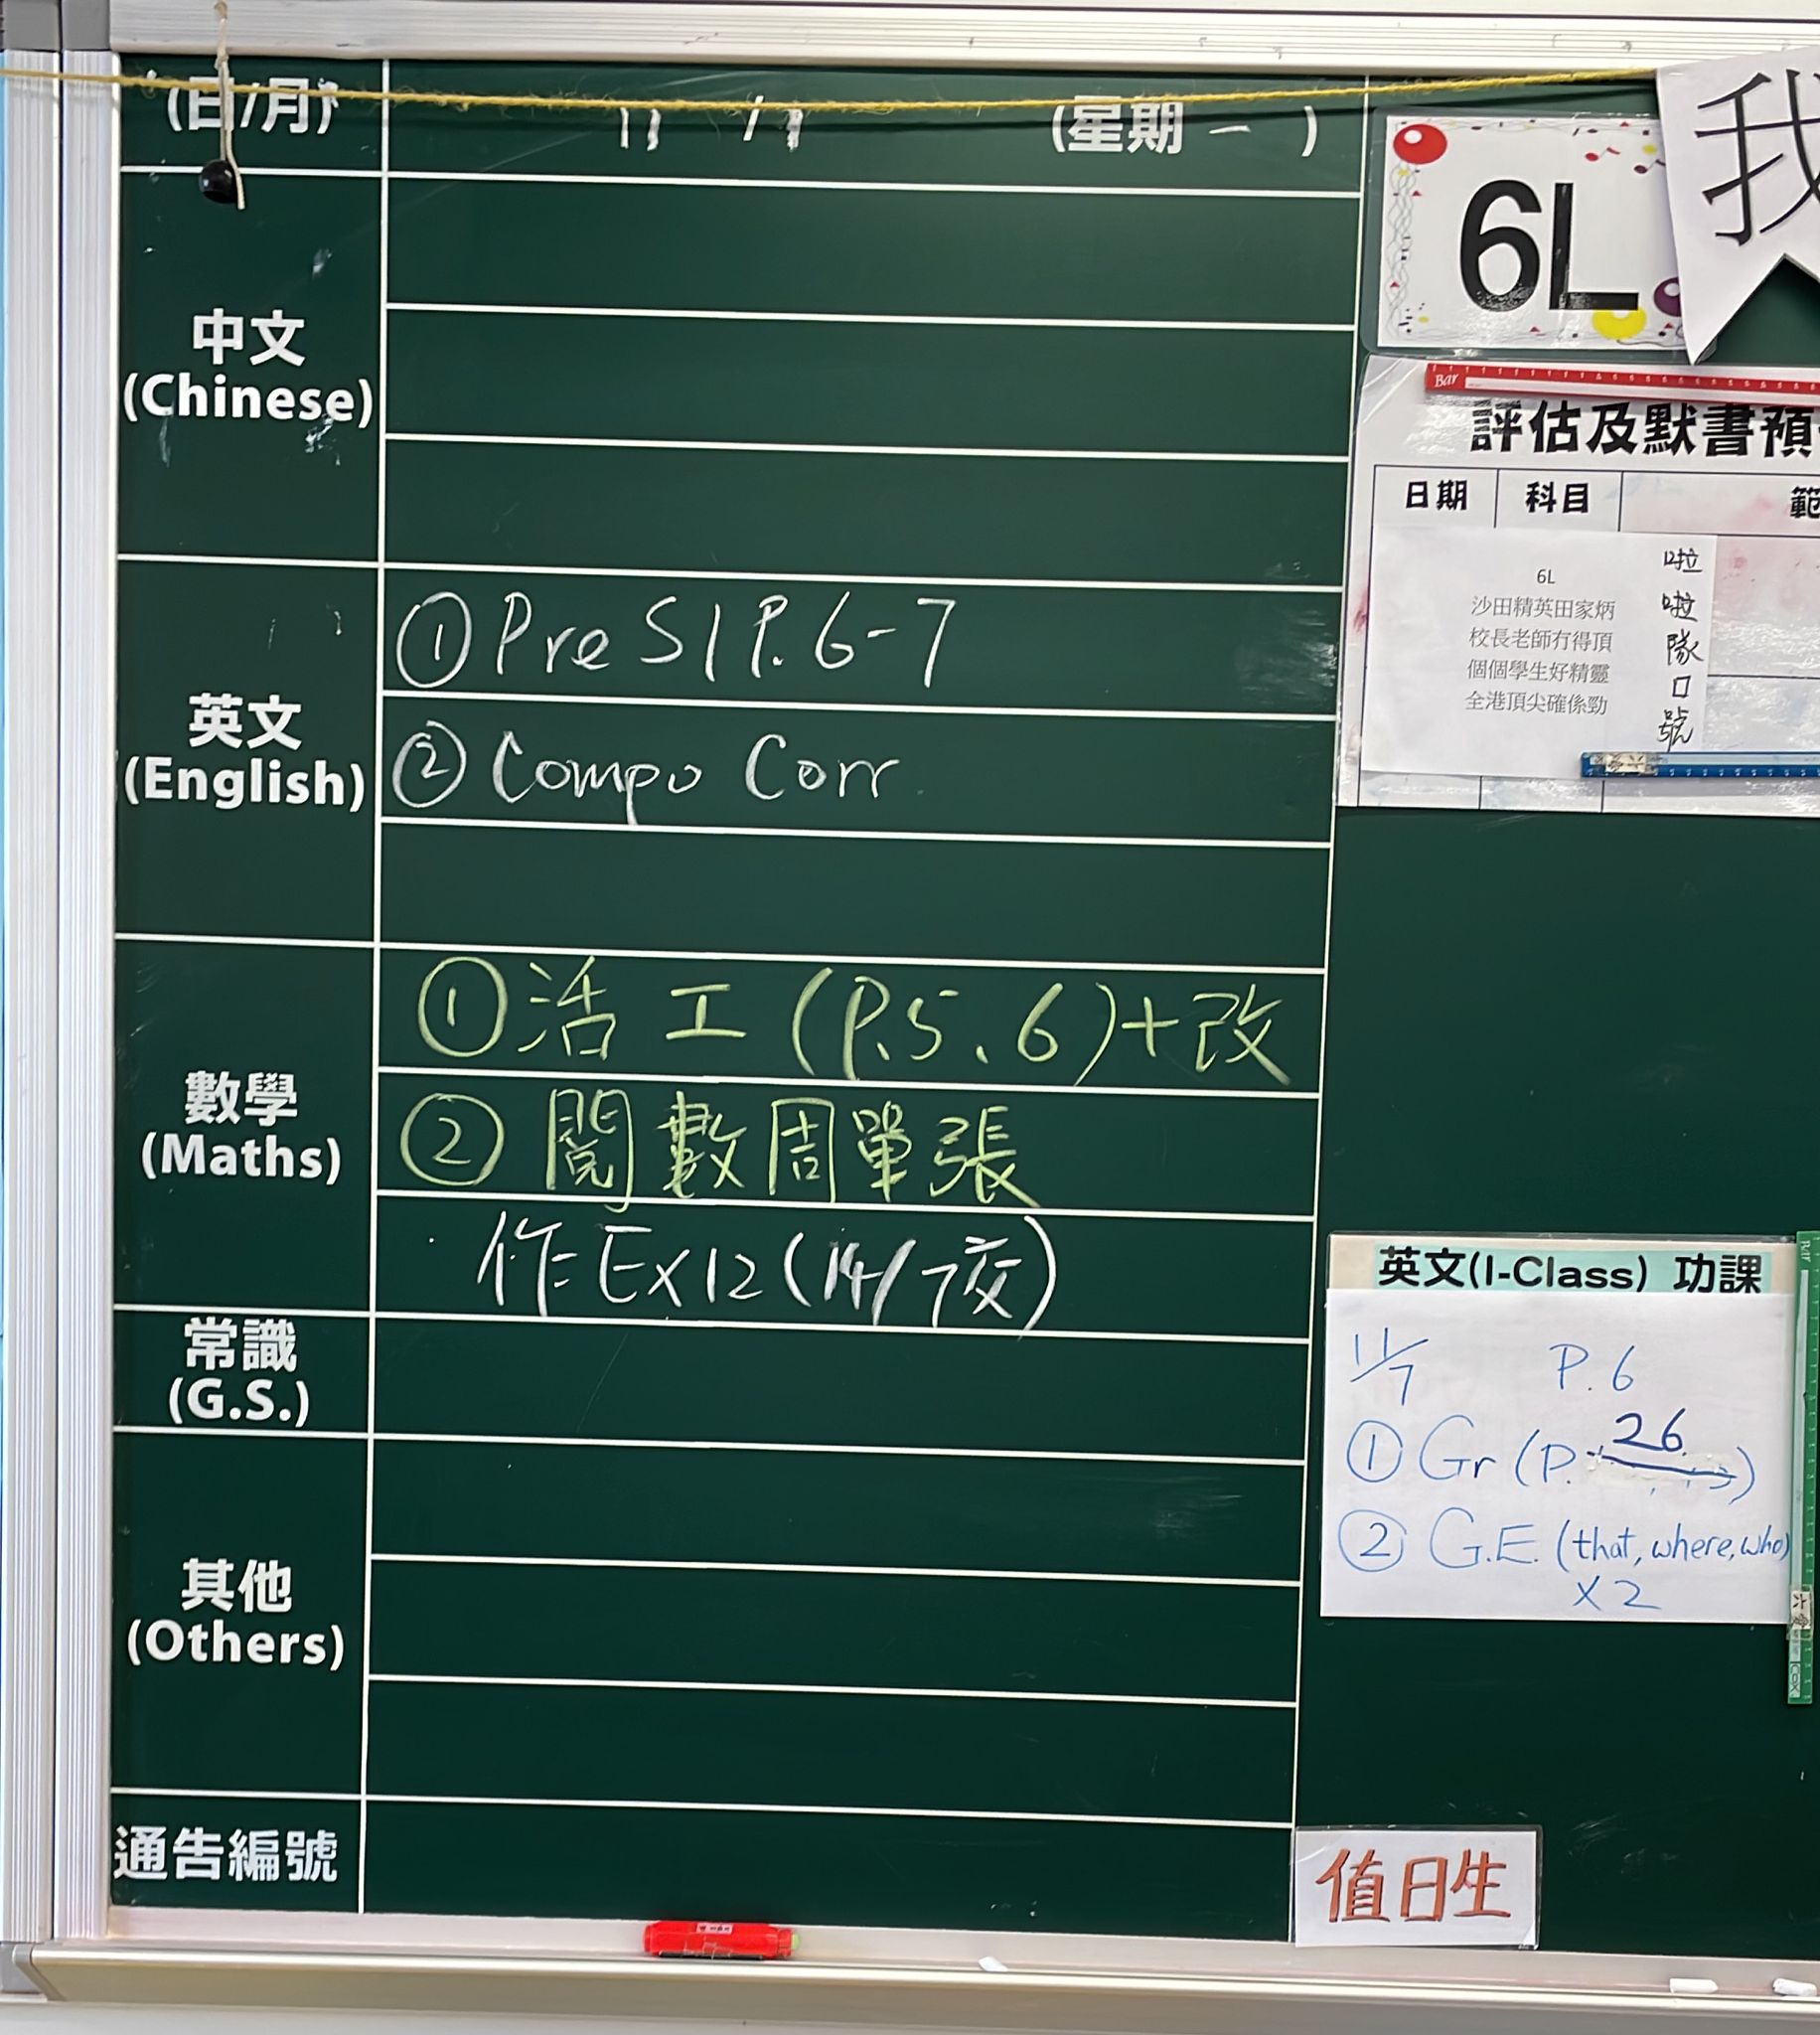 (日/月) 11 /7 (星期一)
中文
(Chinese)
英文
(English)
①Pre S1 P.6-7
②Compo Corr
數學
(Maths)
①活工(P.5、6)+改
②閱數周單張
作Ex12(14/7交)
常識
(G.S.)
其他
(Others)
通告編號
6L
我
Bar
評估及默書預
日期 科目 範
6L
沙田精英田家炳
校長老師冇得頂
個個學生好精靈
全港頂尖確係勁
啦啦隊口號
英文(I-Class) 功課
11/7 P.6
①Gr (P. 26)
②G.E. (that, where, who)
×2
值日生